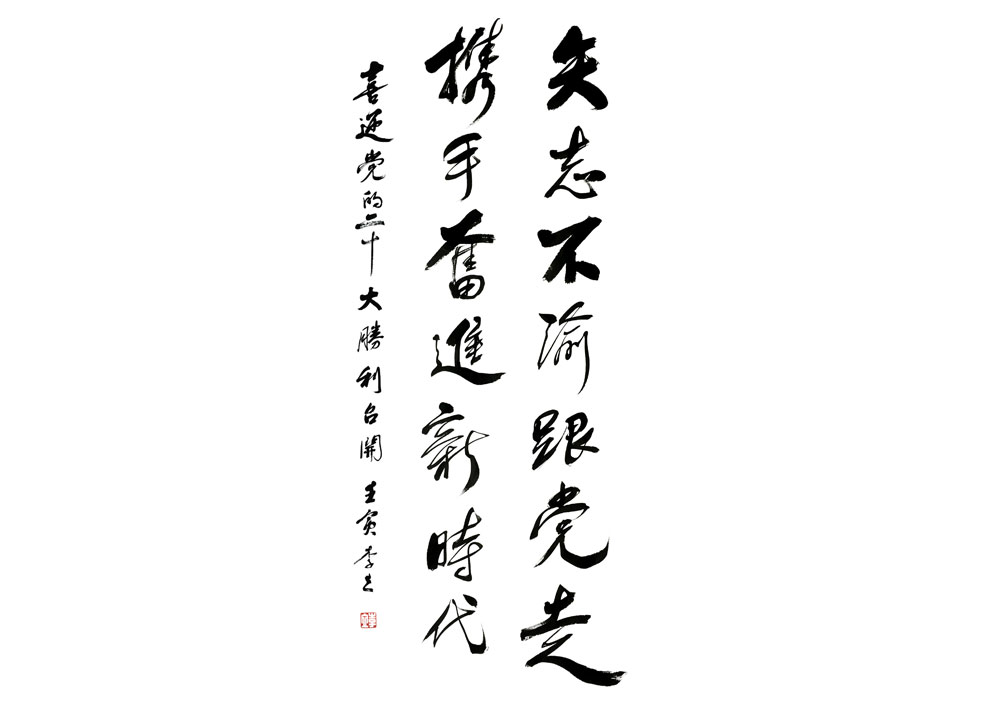 矢志不渝跟党走
携手奮進新時代
喜迎党的二十大勝利召開 壬寅 李之